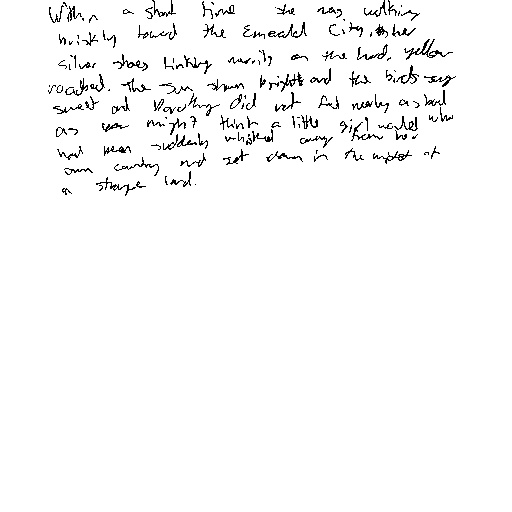 Within a short time she was walking
briskly toward the Emerald City, her
silver shoes tinkling merrily on the hard, yellow
roadbed. The sun shone bright and the birds sang
sweet and Dorothy did not feel nearly as bad
as you might think a little girl would who
had been suddenly whisked away from her
own country and set down in the midst of
a strange land.